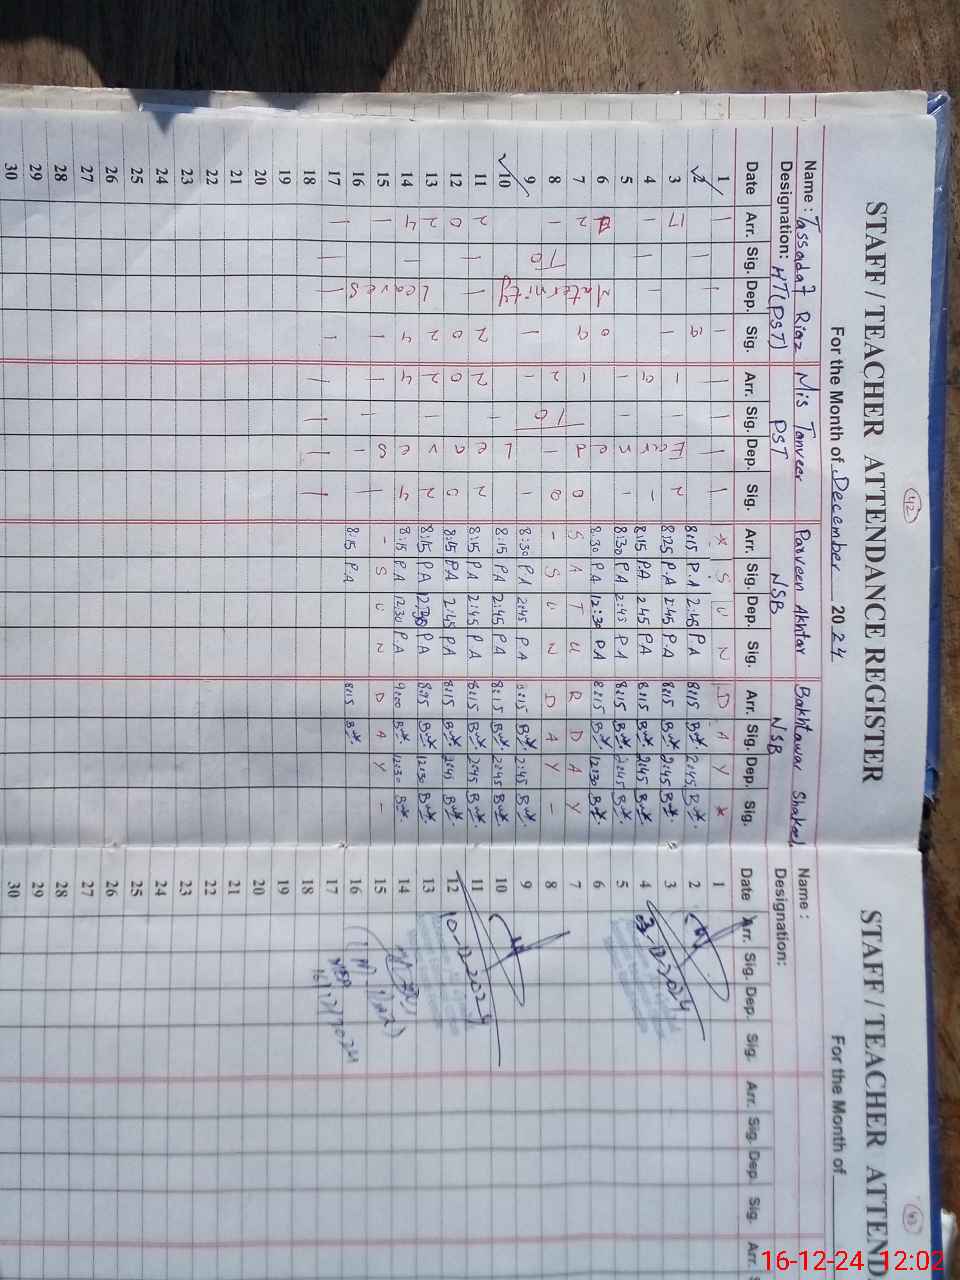 42
STAFF / TEACHER ATTENDANCE REGISTER
For the Month of December 2024
Name : Tassadaf Riaz Mis Tanveer Parveen Akhtar Bakhtawar Shakeel
Designation: HT(PST) PST NSB NSB
Date Arr. Sig. Dep. Sig. Arr. Sig. Dep. Sig. Arr. Sig. Dep. Sig. Arr. Sig. Dep. Sig.
1 * S U N D A Y *
2 8:15 P.A 2:45 P.A 8:15 2:45
3 8:25 P.A 2:45 P.A 8:15 2:45
4 8:15 P.A 2:45 P.A 8:15 2:45
5 8:30 P.A 2:45 P.A 8:15 2:45
6 8:30 P.A 12:30 P.A 8:15 12:30
7 S A T U R D A Y
8 - S U N D A Y -
9 8:30 P.A 2:45 P.A 8:15 2:45
10 8:15 P.A 2:45 P.A 8:15 2:45
11 8:15 P.A 2:45 P.A 8:15 2:45
12 8:15 P.A 2:45 P.A 8:15 2:45
13 8:15 P.A 12:30 P.A 8:15 12:30
14 8:15 P.A 12:30 P.A 9:00 12:30
15 - S U N D A Y -
16 8:15 P.A 8:15
17
18
19
20
21
22
23
24
25
26
27
28
29
30
Maternity Leaves
TO
Earned Leaves
TO
43
STAFF / TEACHER ATTEND
For the Month of
Name :
Designation:
Date Arr. Sig. Dep. Sig. Arr. Sig. Dep. Sig. Arr.
1
2
3
4
5
6
7
8
9
10
11
12
13
14
15
16
17
18
19
20
21
22
23
24
25
26
27
28
29
30
3-12-2024
10-12-2024
16/12/2024
16-12-24 12:02